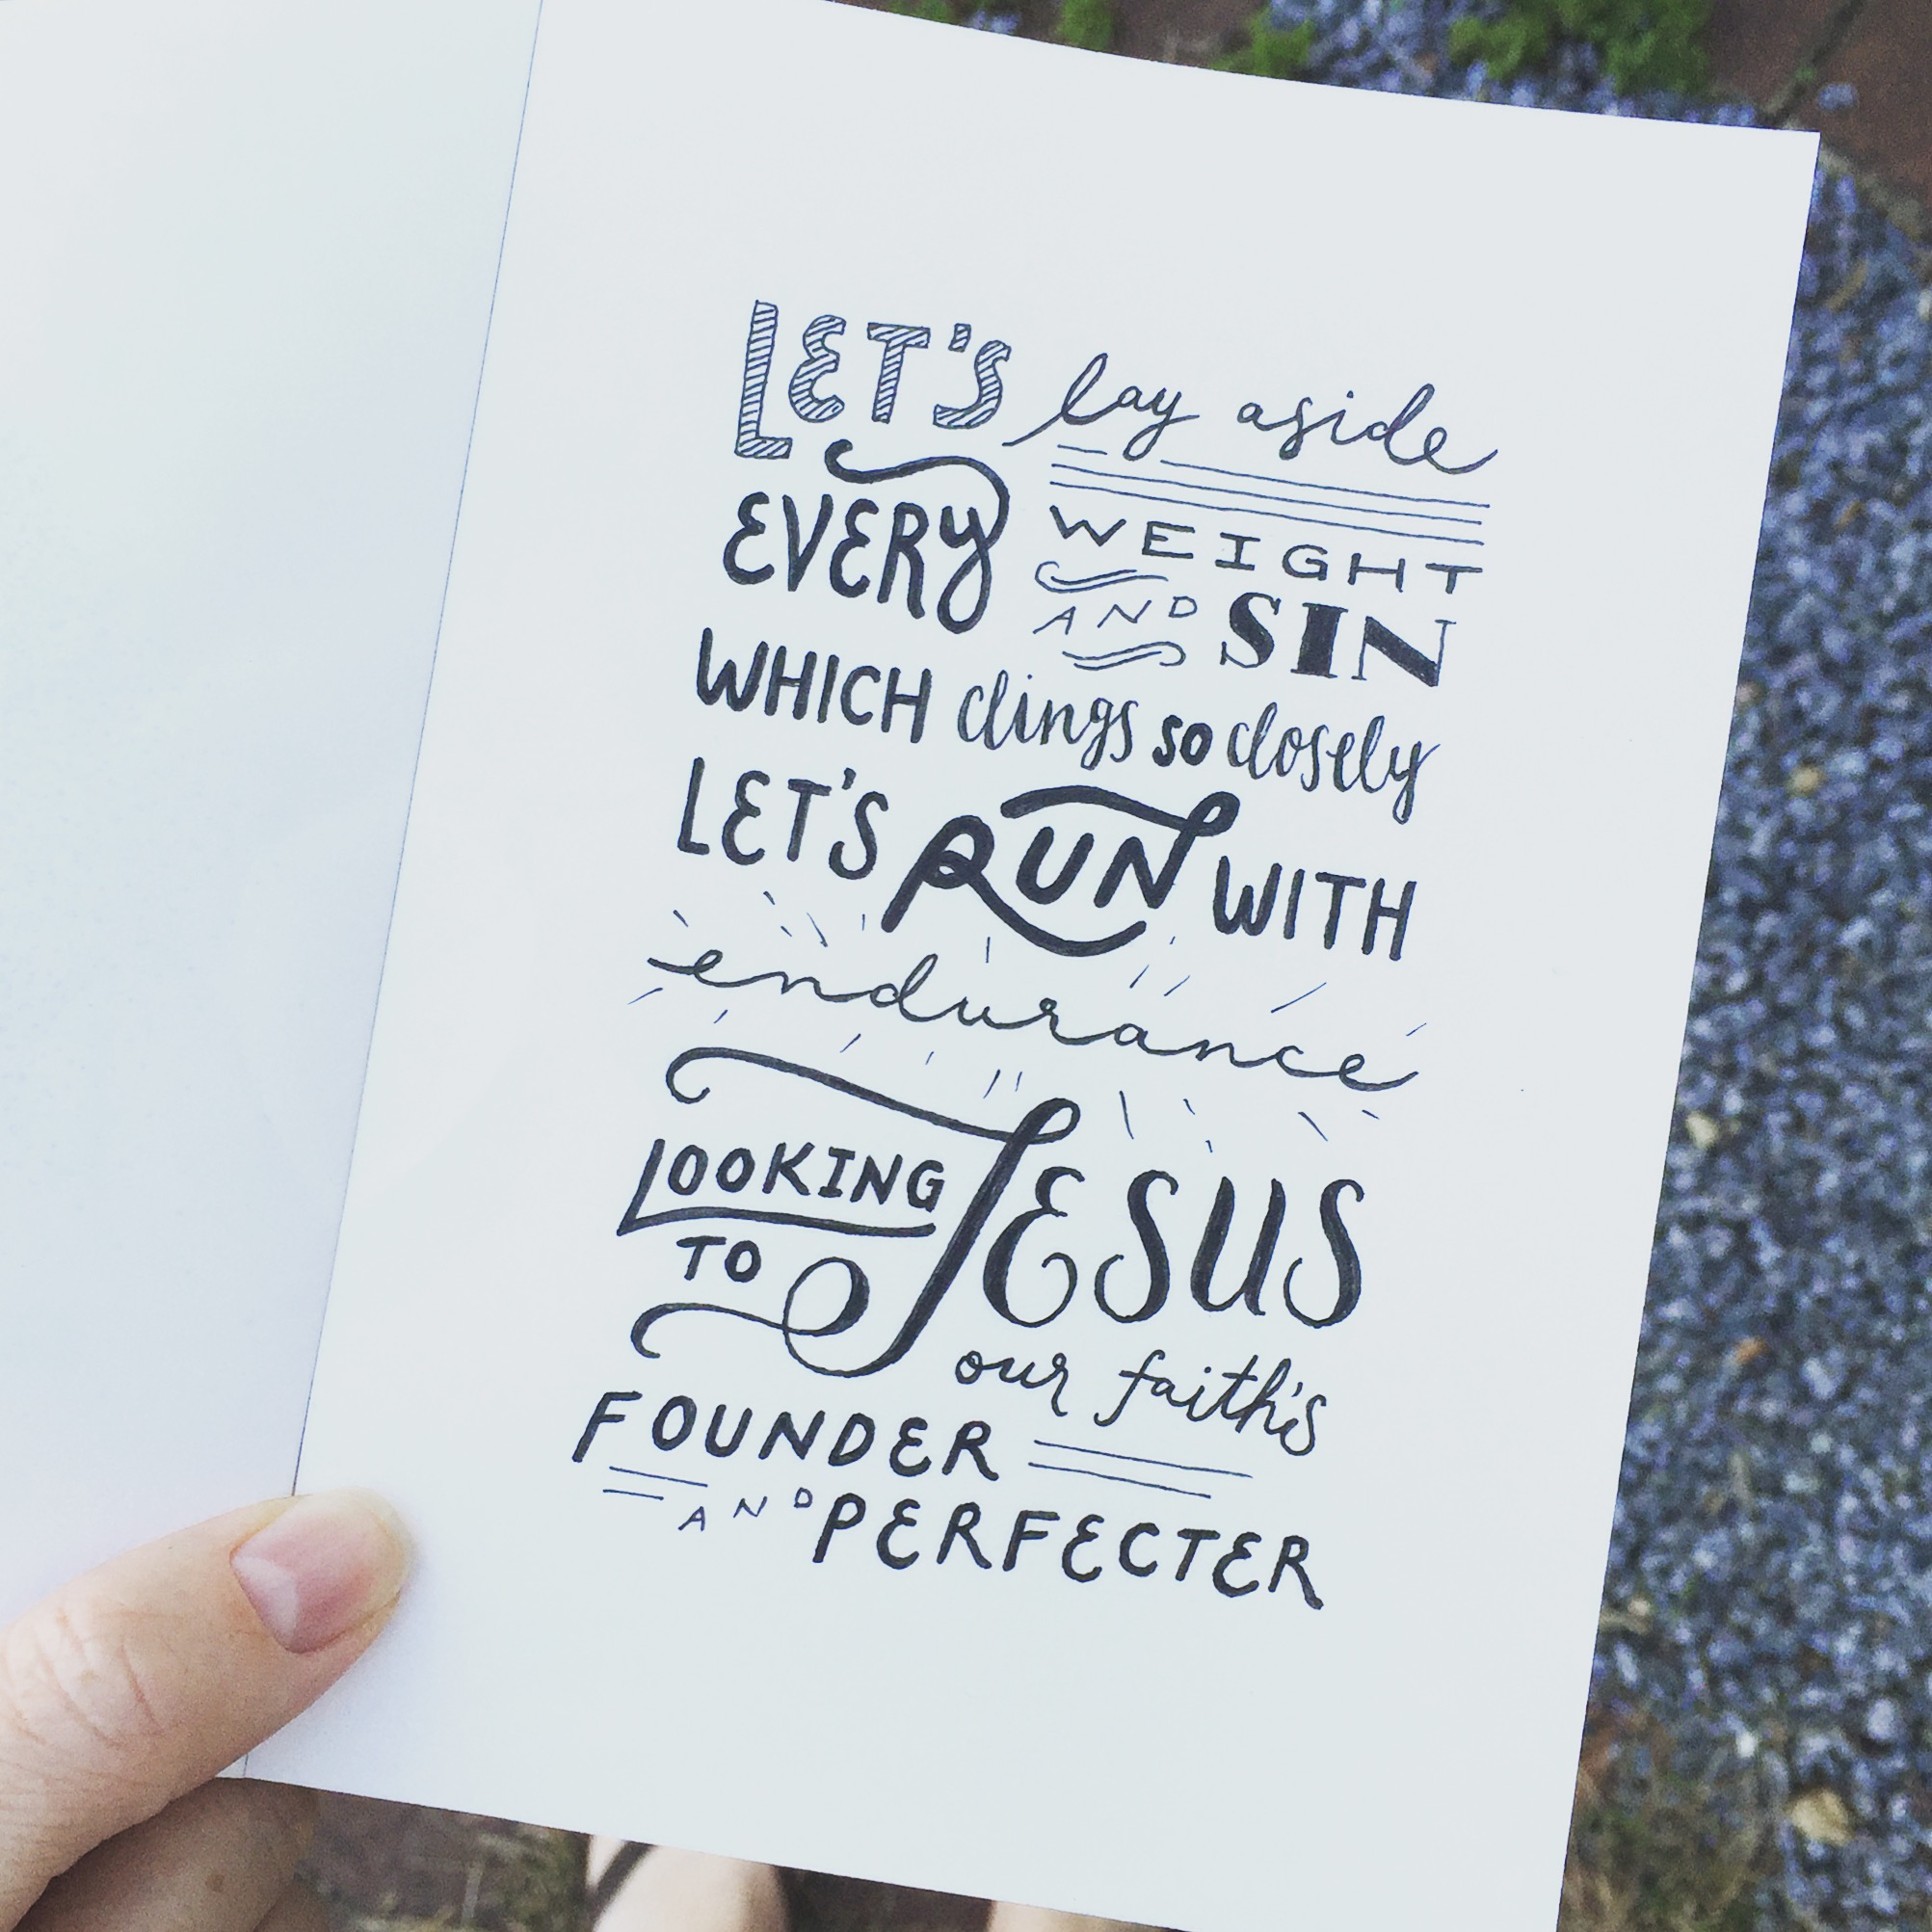 LET'S lay aside
EVERY WEIGHT
AND SIN
WHICH clings so closely
LET'S RUN WITH
endurance
LOOKING
TO JESUS
our faith's
FOUNDER
AND PERFECTER